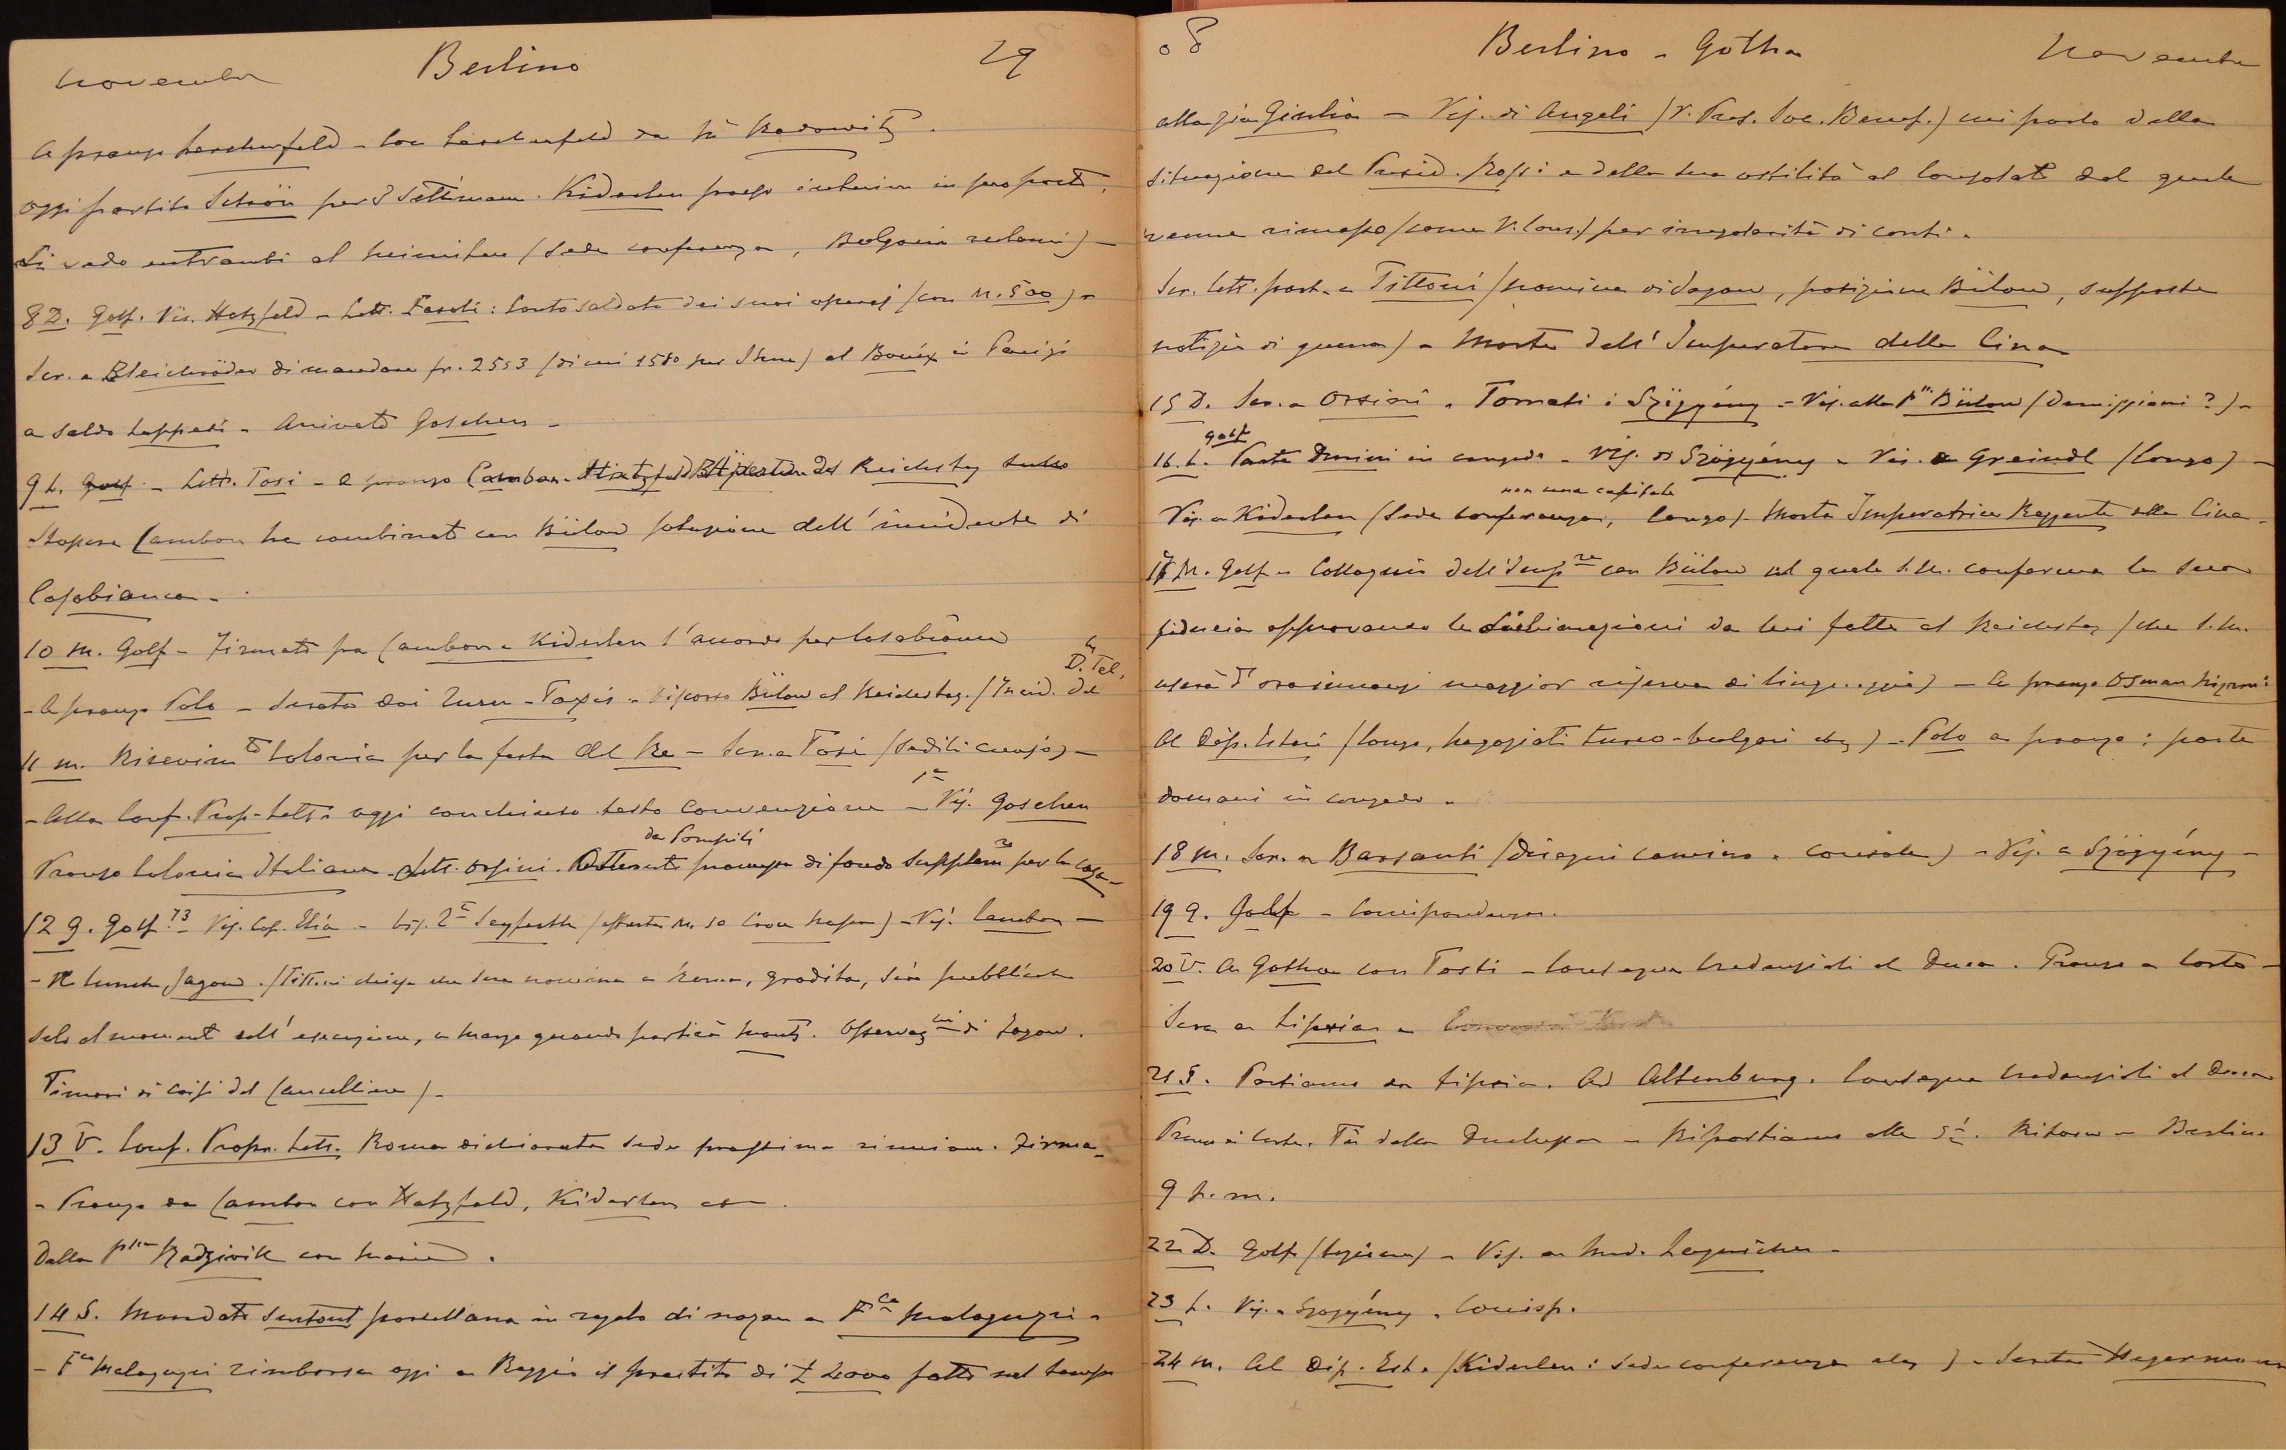 novembre Berlino 29
A pranzo Lerchenfeld - Con Lerchenfeld da Radowitz.
Oggi partito Schön per 3 settimane. Kiderlen prese interim in suo posto.
vado entrambi al ministero (sede conferenza, Bulgaria reclami) -
8 D. Golf. Vis. Hatzfeld - Lett. Fasoli: Conto saldato dei suoi operaj (con M. 500) -
Scr. a Bleichröder di mandare fr. 2553 (di cui 1580 per ) al Bouix a Parigi
a saldo tappeti - Arrivato Goschen -
9 L. Golf - Lett. Tosi - a pranzo Cambon - Hatzfeld del Reichstag sulle
Stasera Cambon ha combinato con Bülow soluzione dell'incidente di
Casabianca -
10 M. Golf - Firmato fra Cambon e Kiderlen l'accordo per Casabianca
- A pranzo Polo - Serata dai Turn-Taxis - Discorso Bülow al Reichstag. (Incid. del D. Tel.
11 M. Ricevim to Colonia per la festa del Re - Scr. a Tosi
- Alla Conf. Prop. Lett. a oggi conchiuso testo convenzione - 1a Vis. Goschen
Pranzo Colonia Italiana - Lett. Orsini. Ottenuta da Pompilj promessa di fondo supplem re per la casa -
12 G. Golf 73 Vis. Cap. Elia - Vis. 2a Seyfarth (offerta M. 50 Croce Rossa) - Vis. Cambon -
- A lunch Jagow. (Tittoni chiese che sua nomina a Roma, gradita, sia pubblicata
solo al momento dell'esecuzione, a marzo quando partirà Monts. Osservaz ni di Jagow.
Timori di crisi del Cancelliere) -
13 V. Conf. Propr. Lett. Roma dichiarata sede prossima riunione. Firma -
- Pranzo da Cambon con Hatzfeld, Kiderlen
Dalla pssa Radziwill con Maria.
14 S. Mandato Surtout porcellana in regalo di nozze a F ca Malaguzzi -
- F ca Malaguzzi rimborsa oggi a Reggio il prestito di £ 2000 fatto nel tempo
30 Berlino - Gotha novembre
alla zia Giulia - Vis. di Angeli (V. Pres. Soc. Benef.) mi parla della
situazione del Presid. Rossi e della sua ostilità al Consolato dal quale
venne rimosso (come V. Cons.) per irregolarità di conti.
Scr. lett. part. a Tittoni (nomina di Jagow, posizione Bülow, supposte
notizie di guerra) - Morte dell'Imperatore della Cina
15 D. Scr. a Orsini, Tornati e Szögyény - Vis. alla Pssa Bülow (Dimissioni?) -
16. L. Golf Parte in congedo - Vis. di Szögyény - Vis. a Greindl (Congo) -
Vis. a Kiderlen (Sede conferenza, non una capitale Congo) - Morta Imperatrice Reggente della Cina.
17 M. Golf - Colloquio dell'Imp re con Bülow nel quale S.M. conferma la sua
fiducia approvando le dichiarazioni da lui fatte al Reichstag (che S.M.
userà d'ora innanzi maggior riserva di linguaggio) - A pranzo Osman Nizami
Al Dip. Esteri (Congo, negoziati turco-bulgari ) - Polo a pranzo: parte
domani in congedo -
18 M. Scr. a Barsanti (disegni camino e console) - Vis. a Szögyény -
19 G. Golf - Corrispondenza.
20 V. A Gotha con Tosti - Consegna credenziali al Duca. Pranzo a Corte -
Sera a Lipsia -
21 S. Partiamo da Lipsia. Ad Altenburg. Consegna credenziali al Duca
Pranzo a Corte. Tè dalla Duchessa - Ripartiamo alle 5 1/2. Ritorno a Berlino
9 p.m.
22 D. Golf - Vis. a
23 L. Vis. a Szögyény. Corrisp.
24 M. Al Dip. Est. (Kiderlen: sede conferenza ) - Serata Hegermann